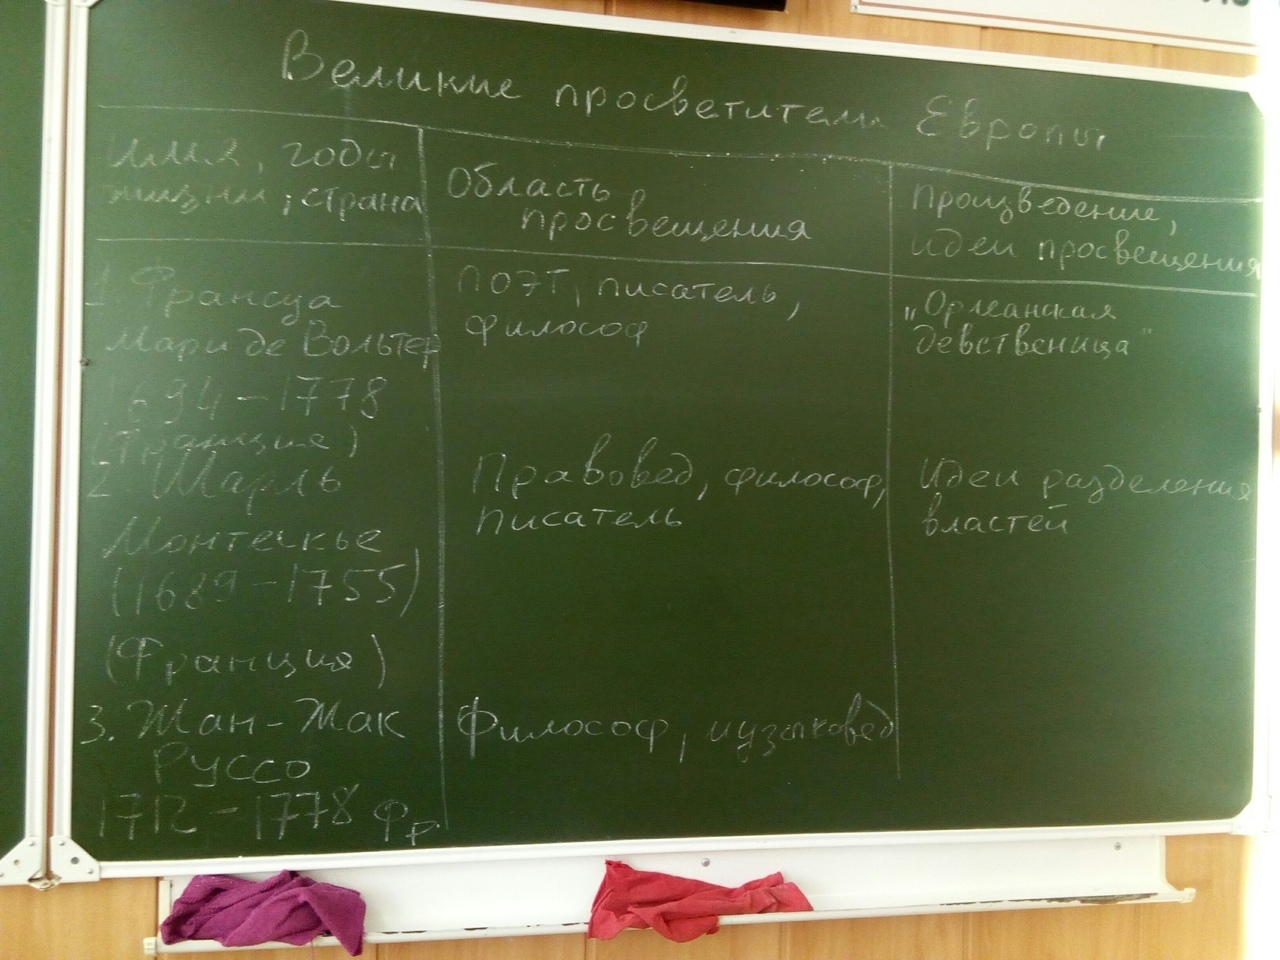 Великие просветители Европы
Имя, годы
жизни, страна
Область
просвещения
Произведение,
идеи просвещения
1. Франсуа
Мари де Вольтер
1694-1778
(Франция)
поэт, писатель,
философ
„Орлеанская
девственица"
2. Шарль
Монтескье
(1689-1755)
(Франция)
Правовед, философ,
писатель
Идеи разделения
властей
3. Жан-Жак
Руссо
1712-1778 Фр
Философ, музыковед